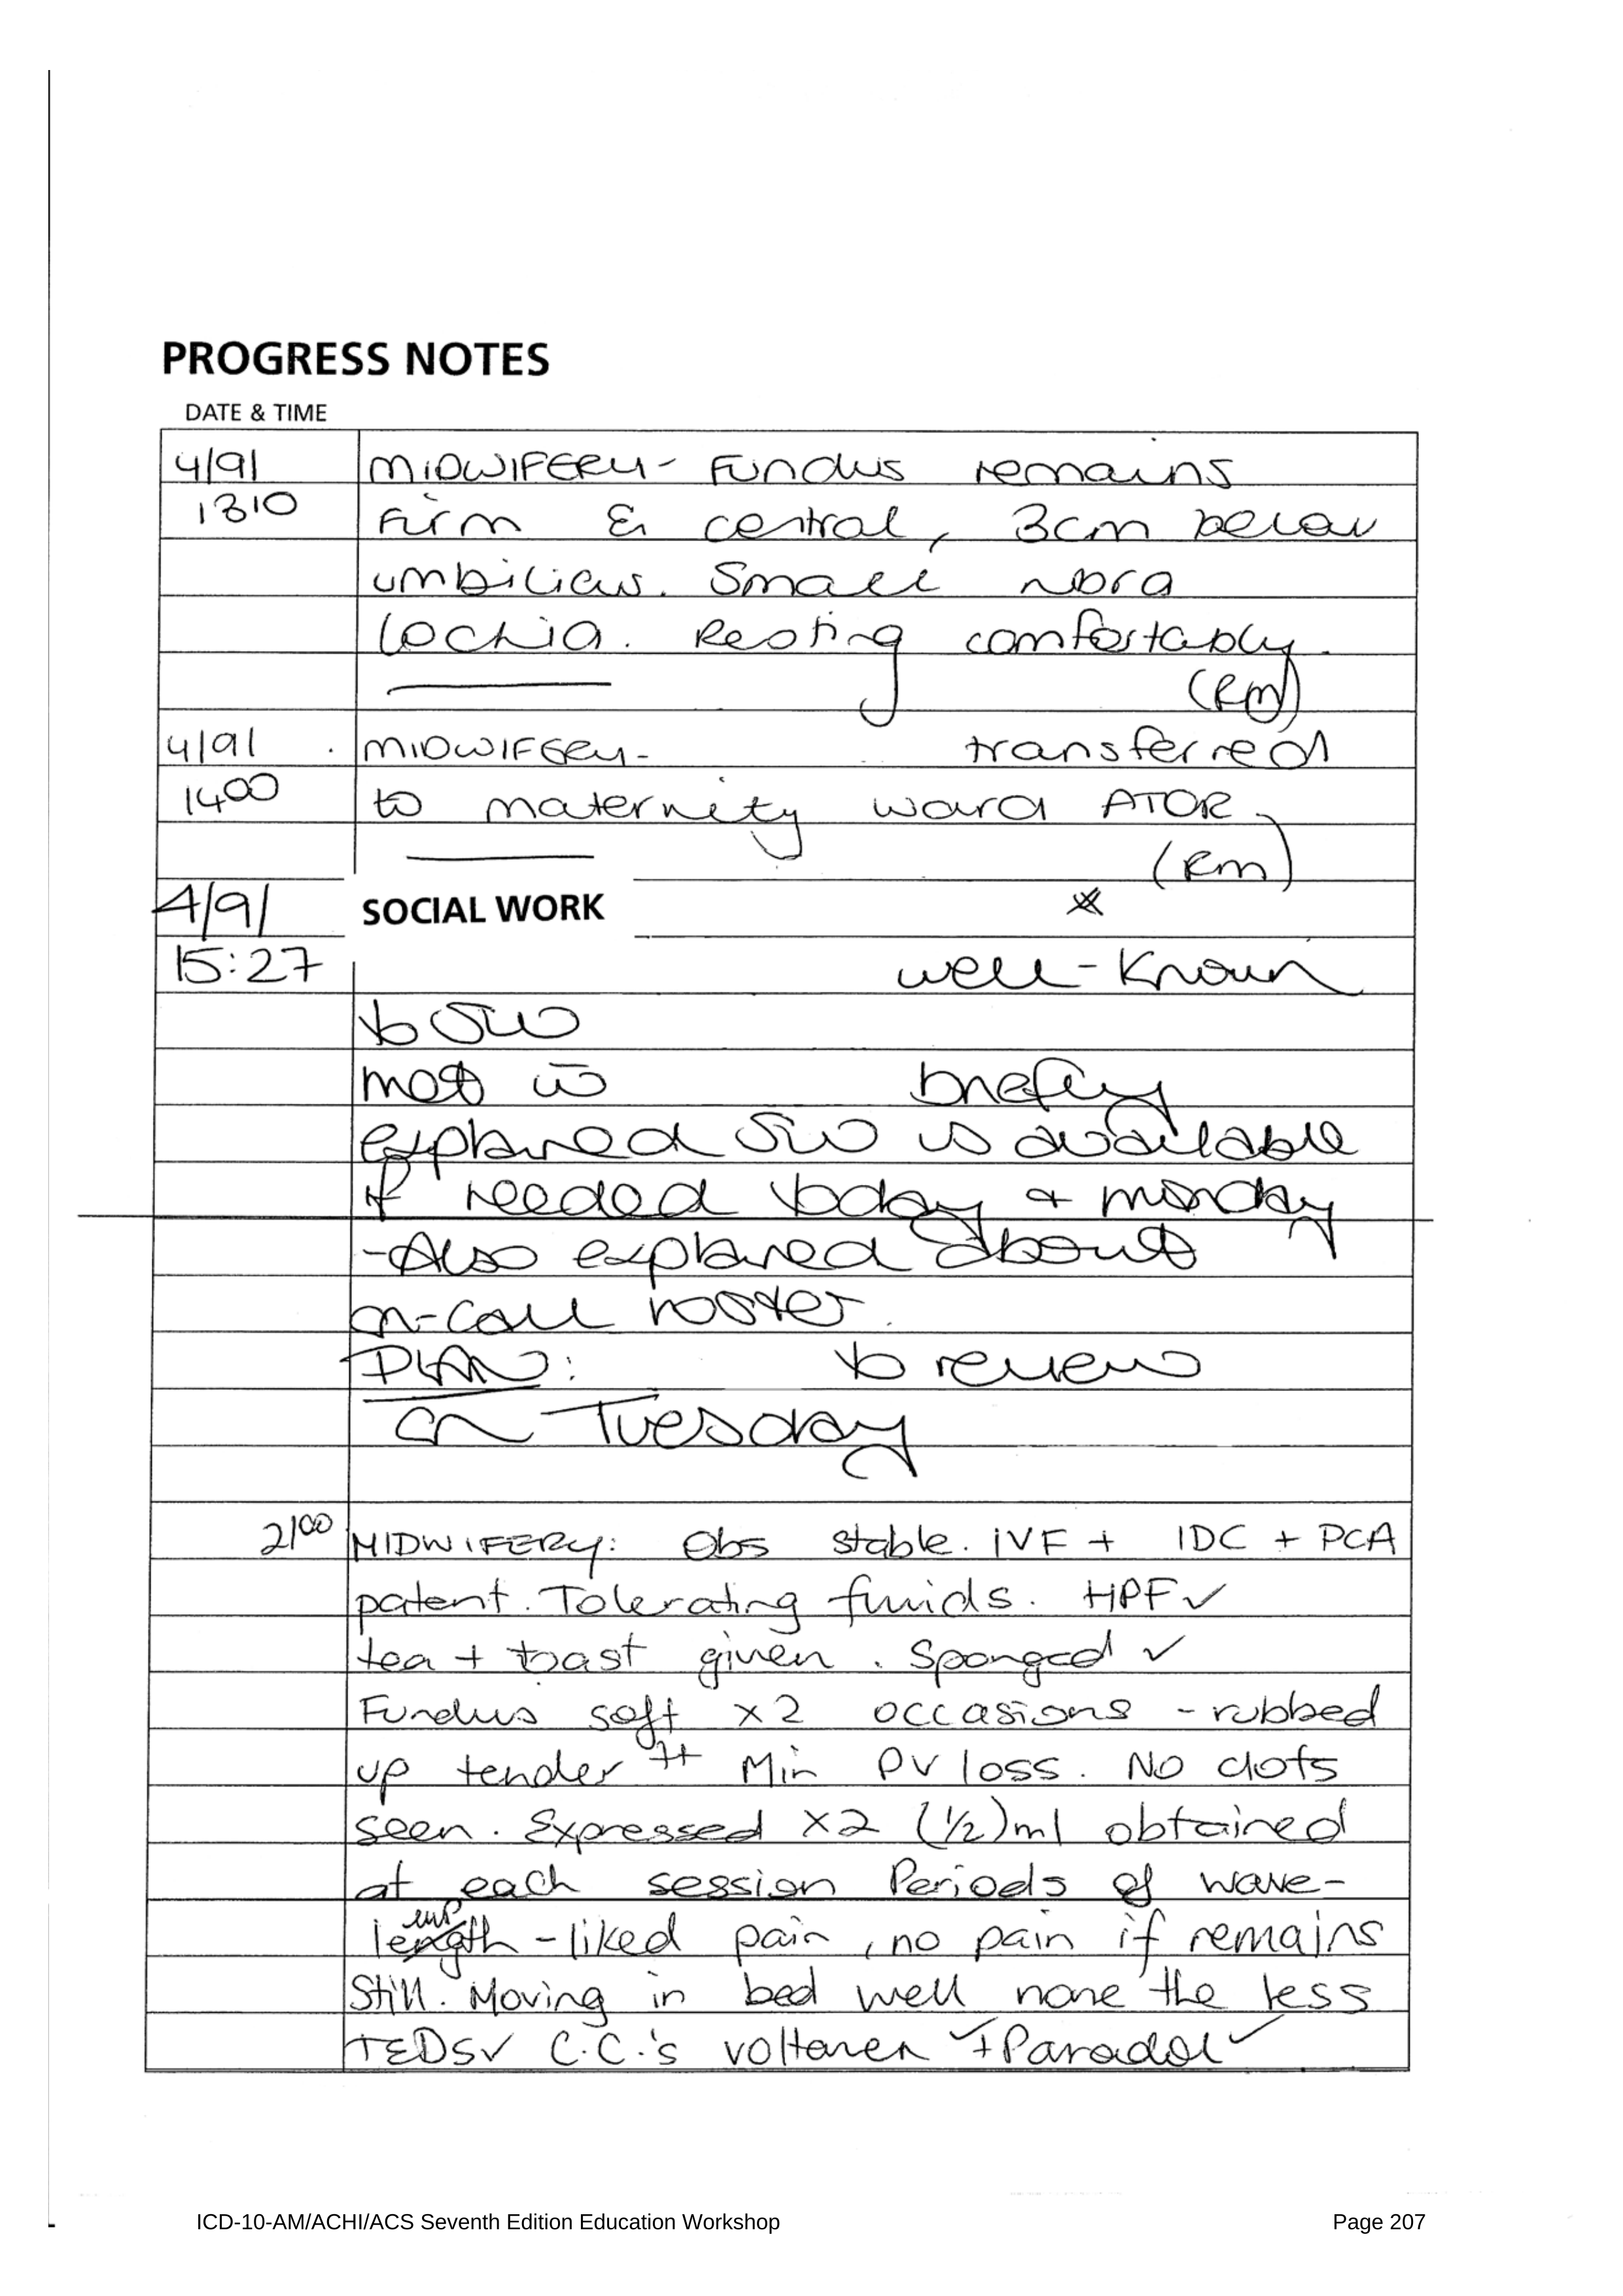 PROGRESS NOTES
DATE & TIME
4/9/ MIDWIFERY- Fundus remains
1310 Firm & central, 3cm below
umbilicus. Small
lochia. Resting comfortably.
(RM)
4/9/ MIDWIFERY- transferred
1400 to maternity ward ATOR.
(RM)
4/9/ SOCIAL WORK
15:27 well-known
to SW
met c̄ briefly
explained SW is available
if needed today + monday
-Also explained about
on-call roster.
PLAN: to review
on Tuesday
2100 MIDWIFERY: Obs stable. IVF + IDC + PCA
patent. Tolerating fluids. HPF ✓
tea + toast given. Sponged ✓
Fundus soft x2 occasions - rubbed
up tender ++ Min PV loss. No clots
seen. Expressed x2 (½)ml obtained
at each session Periods of wave-
length - liked pain, no pain if remains
still. Moving in bed well none the less
TEDS ✓ C.C.'s voltaren ✓ + Paradol ✓
ICD-10-AM/ACHI/ACS Seventh Edition Education Workshop Page 207